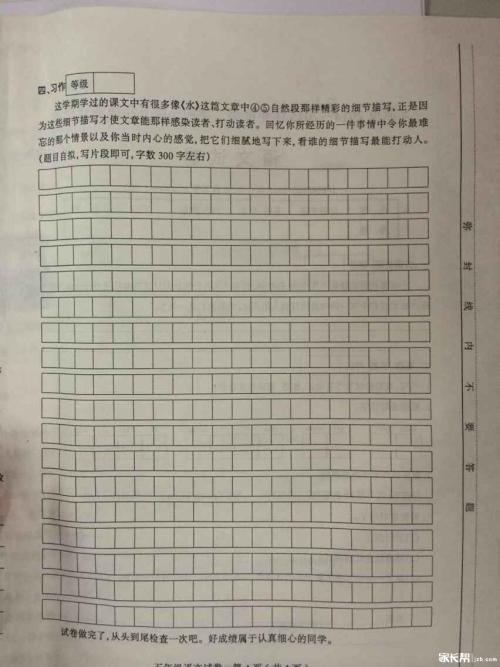 四、习作 等级
这学期学过的课文中有很多像《水》这篇文章中④⑤自然段那样精彩的细节描写,正是因
为这些细节描写才使文章能那样感染读者、打动读者。回忆你所经历的一件事情中令你最难
忘的那个情景以及你当时内心的感觉,把它们细腻地写下来,看谁的细节描写最能打动人。
(题目自拟,写片段即可,字数 300 字左右)
弥封线内不要答题
试卷做完了,从头到尾检查一次吧。好成绩属于认真细心的同学。
五年级语文试卷
家长帮 jzb.com